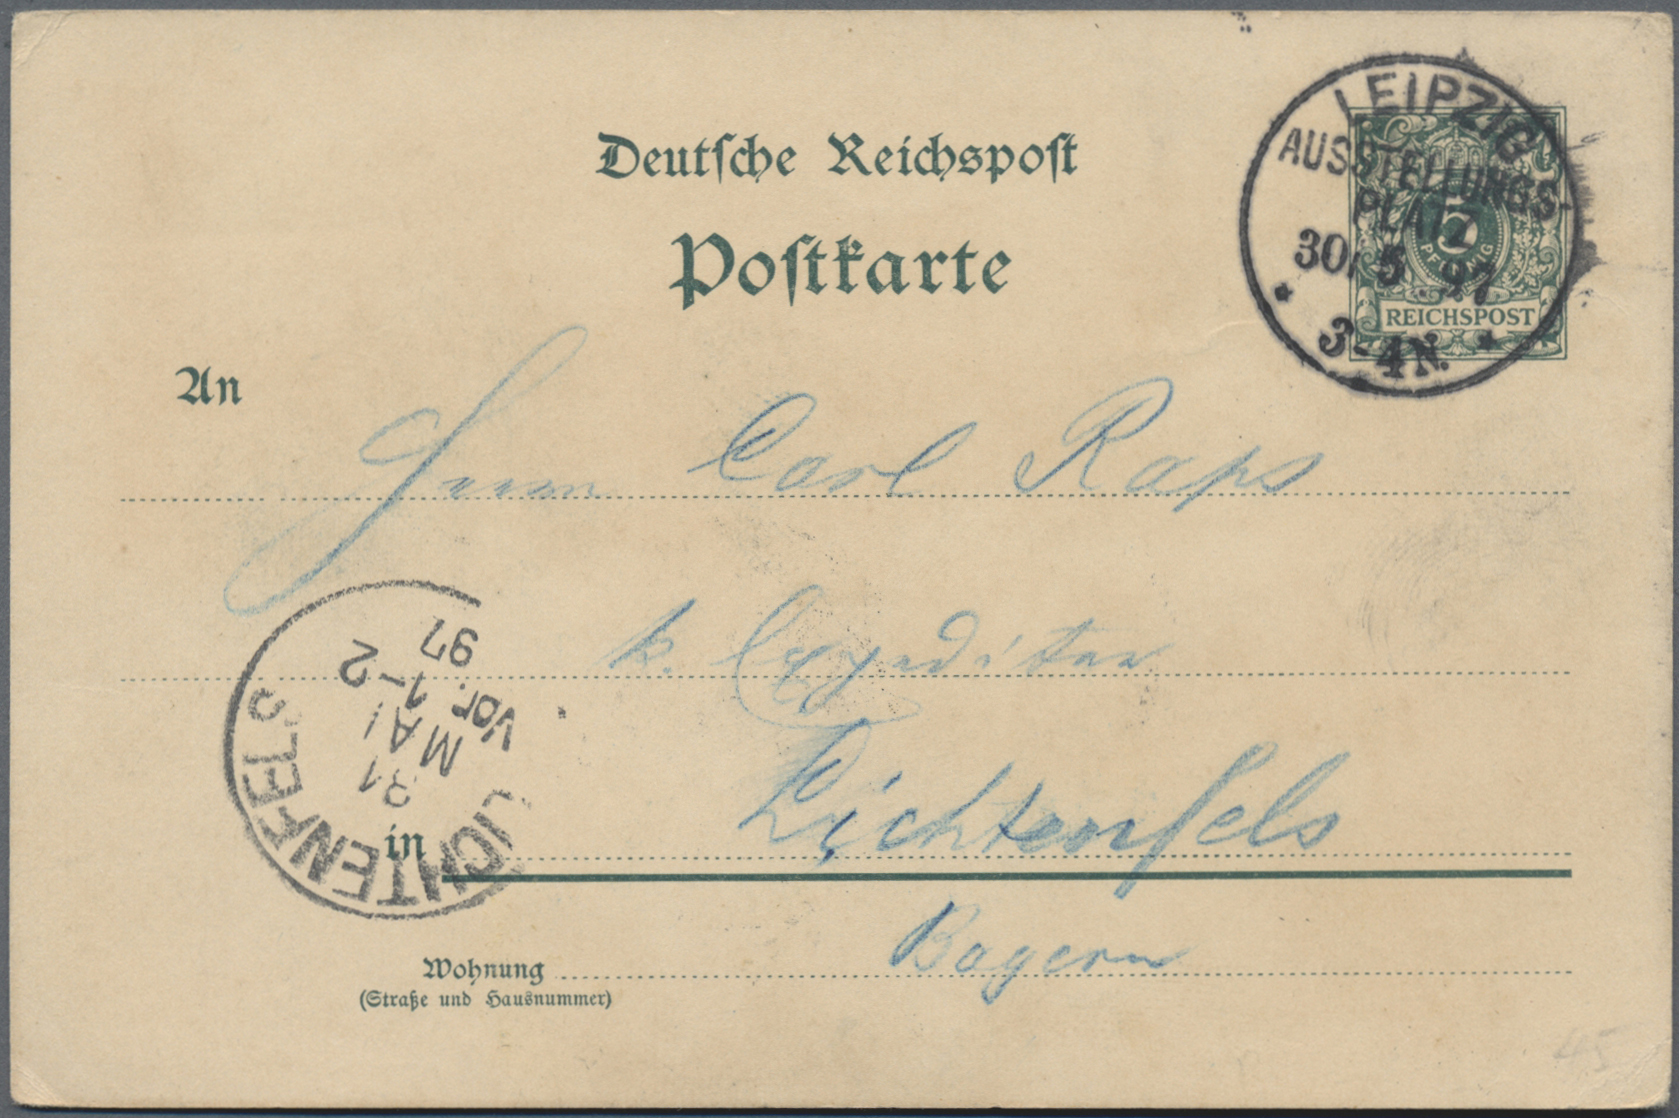 Deutsche Reichspost
Postkarte
LEIPZIG
AUSSTELLUNGS-
PLATZ
30/5 97
3-4N.
5
PFENNIG
REICHSPOST
An
Herrn Carl Raps
k. Expeditor
in Lichtenfels
Bayern
LICHTENFELS
31
MAI
Vor. 1-2
97
Wohnung
(Straße und Hausnummer)
45